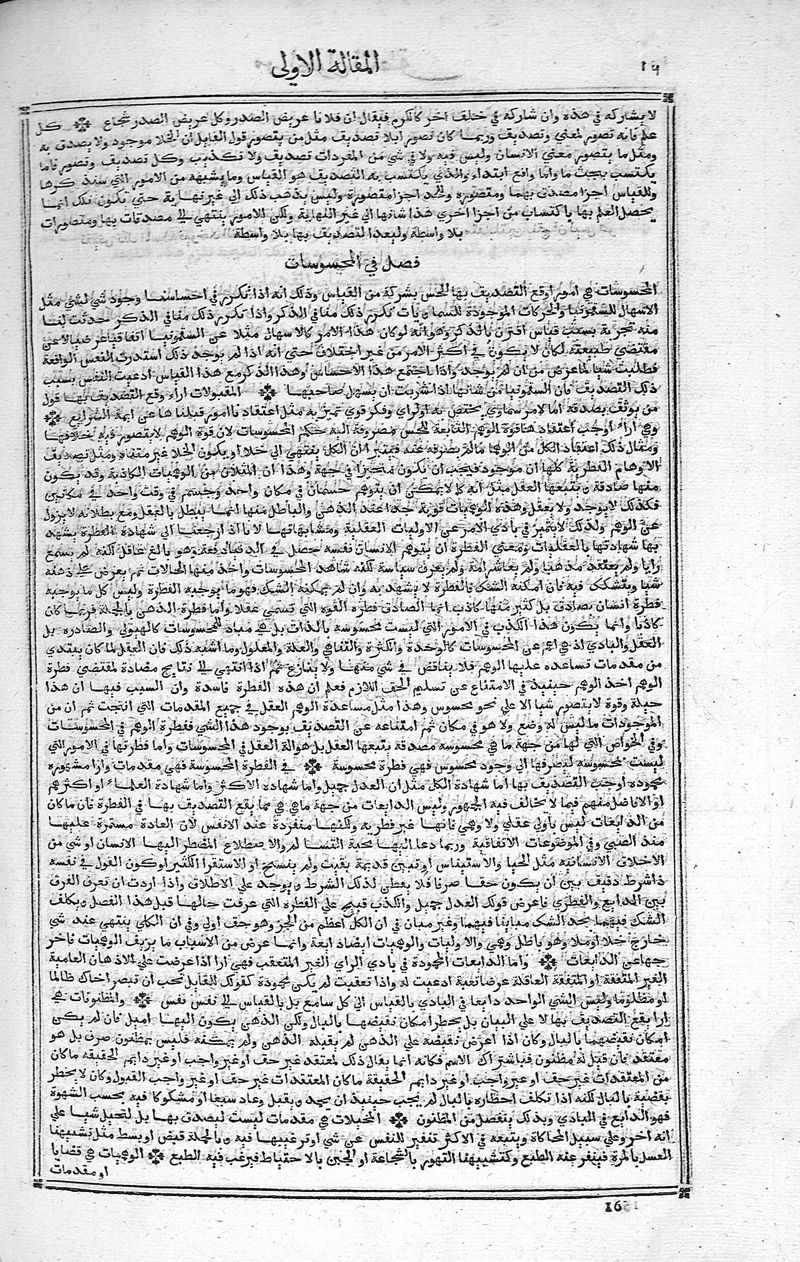 ١٦
المقالة الاولى
لا يشاركه في هذه وان شاركه في خلف اخر كالكرم فيقال ان فلانا عريض الصدر وكل عريض الصدر شجاع كل
علم فانه تصور لمعني وتصديف وربما كان تصور بلا تصديف مثل من يتصور قول القايل ان الخلا موجود ولا يصدف به
ومثل ما يتصور معني الانسان وليس فيه ولا في شي من المفردات تصديف ولا تكذيب وكل تصديف وتصور فاما
يكتسب ببحث ما واما واقع ابتداء والذي يكتسب به التصديف هو القياس وما يشبهه من الامور التي سنذكرها
وللقياس اجزا مصدف بها ومتصورة وللحد اجزا متصورة وليس يذهب ذلك الي غير نهاية حتي يكون تلك انما
يحصل العلم بها باكتساب من اجزا اخري هذا شانها الي غير النهاية ولكن الامور ينتهي الي مصدقات بها ومتصورات
بلا واسطة ولنعد التصديف بها بلا واسطة
فصل في المحسوسات
المحسوسات هي امور اوقع التصديف بها الحس بشركة من القياس وذلك انه اذا تكرر في احساسنا وجود شي لشي مثل
الاسهال للسقمونيا والحركات الموجودة للسماويات تكرر ذلك منا في الذكر واذا تكرر ذلك منا في الذكر حدثت لنا
منه تجربة بسبب قياس اقترن بالذكر وهو انه لو كان هذا الامر كالاسهال مثلا عن السقمونيا اتفاقيا عرضيا لا عن
مقتضي طبيعته لكان لا يكون في اكثر الامر من غير اختلاف حتي انه اذا لم يوجد ذلك استندرت النفس الواقعة
فطلبت سببا لما عرض من ان لم يوجد واذا اجتمع هذا الاحساس وهذا الذكر مع هذا القياس اذعنت النفس بسبب
ذلك التصديف بان السقمونيا من شانها اذا شربت ان يسهل صاحبها المقبولات اراء وقع التصديف بها قول
من يوثف بصدقه اما لامر سماوي يختص به او لراي وفكر قوي تميز به مثل اعتقادنا امورا قبلناها عن ايمة الشرايع
وهي اراء اوجب اعتقادها قوة الوهم التابعة للحس مصروفة الي حكم المحسوسات لان قوة الوهم لا يتصور فيها خلافها
ومثال ذلك اعتقاد الكل من الوهما ما لم يصرفوا عنه قسرا ان الكل ينتهي الي خلا او يكون الخلا غير متناه ومثل تصديف
الاوهام الفطرية كلها ان موجود فيجب ان يكون متحيزا في جهة وهذا ان المثلان من الوهميات الكاذبة وقد يكون
منها صادقة يتبعها العقل مثل انه كما لا يمكن ان يتوهم جسمان في مكان واحد وجسم في وقت واحد في مكانين
فكذلك لا يوجد ولا يعقل وهذه الوهميات قوية جدا عند الذهن والباطل منها انما يبطل بالعقل ومع بطلانه لا يزول
عن الوهم ولذلك لا يتميز في بادي الامر عن الاوليات العقلية ومشابهاتها لانا اذا رجعنا الي شهادة الفطرة يشهد
بها شهادتها بالعقليات ومعني الفطرة ان يتوهم الانسان نفسه حصل في الدنيا دفعة وهو بالغ عاقل لكنه لم يسمع
رايا ولم يعتقد مذهبا ولم يعاشر امة ولم يعرف سياسة لكنه شاهد المحسوسات واخذ منها الخيالات ثم يعرض علي ذهنه
شيا ويتشكك فيه فان امكنه الشك فالفطرة لا يشهد به وان لم يمكنه الشك فهو ما يوجبه الفطرة وليس كل ما يوجبه
فطرة انسان بصادق بل كثير منها كاذب انما الصادق فطرة القوة التي تسمي عقلا واما فطرة الذهن بالجملة فربما كان
كاذبا وانما يكون هذا الكذب في الامور التي ليست محسوسة بالذات بل هي مباد للمحسوسات كالهيولي والصورة بل
العقل والبادي او هي اعم عن المحسوسات كالوحدة والكثرة والتناهي والعلة والمعلول وما اشبه ذلك فان العقل لما كان يبتدي
من مقدمات تساعده عليها الوهم فلا يناقض في شي منها ولا ينازع ثم اذا انتهي الي نتايج مضادة لمقتضي فطرة
الوهم اخذ الوهم حينيذ في الامتناع عن تسليم الحف اللازم فعلم ان هذه الفطرة فاسدة وان السبب فيها ان هذا
جبلة وقوة لا يتصور شيا الا علي نحو محسوس وهذا مثل مساعدة الوهم العقل في جميع المقدمات التي انتجت ثم ان من
الموجودات ما ليس له وضع ولا هو في مكان ثم امتناعه عن التصديف بوجود هذا الشي ففطرة الوهم في المحسوسات
وفي الخواص التي لها من جهة ما هي محسوسة مصدقة يتبعها العقل بل هو الة العقل في المحسوسات واما فطرتها في الامور التي
ليست محسوسة لتصرفها الي وجود محسوس فهي فطرة محسوسة في الفطرة المحسوسة فهي مقدمات وارا مشهورة
محمودة اوجب التصديف بها اما شهادة الكل مثل ان العدل جميل واما شهادة الاكثر واما شهادة العلماء او اكثرهم
او الافاضل منهم فيما لا يخالف فيه الجمهور وليس الذايعات من جهة ما هي هي مما يقع التصديف بها في الفطرة فان ما كان
من الذايعات ليس باولي عقلي ولا وهمي فانها غير فطرية ولكنها متقررة عند الانفس لان العادة مستمرة عليها
منذ الصبي وفي الموضوعات الاتفاقية وربما دعا اليها محبة التسالم والاصطلاح المضطر اليها الانسان او شي من
الاخلاف الانسانية مثل الحيا والاستيناس او سنن قديمة بقيت ولم ينسخ او الاستقرا الكثير او كون القول في نفسه
ذا شرط دقيف بين ان يكون حقا صرفا فلا يفطن لذلك الشرط ويوجد علي الاطلاف واذا اردت ان تعرف الفرف
بين الذايع والفطري فاعرض قولك العدل جميل والكذب قبيح علي الفطرة التي عرفت حالها قبل هذا الفصل وتكلف
الشك فيهما تجد الشك متاتيا فيهما وغير متات في ان الكل اعظم من الجزء وهو حف اولي وفي ان الكل ينتهي عند شي
خارج خلا او ملا وهو باطل وهمي والاوليات والوهميات ايضا ذايعة وانما عرض من الاسباب ما يزيف الوهميات فاخر
جها عن الذايعات واما الذايعات المحمودة في بادي الراي الغير المتعقب فهي ارا اذا عرضت علي الاذهان العامية
الغير المتفطنة او المتفطنة الغافلة عرضا بغتة اذعنت له واذا تعقبت لم يكن محمودة كقول القايل تحب ان تنصر اخاك ظالما
او مظلوما وليس الشي الواحد ذايعا في البادي بالقياس الي كل سامع بل بالقياس الي نفس نفس والمظنونات هي
ارا يقع التصديف بها لا علي البتات بل يخطر امكان نقيضها بالبال ولكن الذهن يكون اليها اميل فان لم يكن
امكان نقيضها بالبال وكان اذا عرض نقيضه علي الذهن لم يقبله الذهن ولم يمكنه فليس بمظنون صرف بل هو
معتقد فان قيل له مظنون فباشتراك الاسم فكانه انما يقال ذلك لمعتقد غير حف او غير واجب او غير دايم لحقيقه ما كان
من المعتقدات غير حف او غير واجب او غير دايم الحقيقة ما كان المعتقدات غير حف او غير واجب القبول وكان لا يخطر
نقضية بالبال لكنه اذا تكلف اخطاره بالبال لم يجب حينيذ ان يحمد ويقبل وعاد سبعا او مشكوكا فيه بحسب الشهوة
فهو الذايع في البادي وبذلك ينفصل من المظنون المخيلات هي مقدمات ليست ليصدف بها بل لتخيل شيا علي
انه اخر وعلي سبيل المحاكاة ويتبعه في الاكثر تنفير للنفس عن شي او ترغيبها فيه وبالجملة قبض او بسط مثل تشبيهنا
العسل بالمرة فينفر عنه الطبع وكتشبيهنا التهور بالشجاعة او الجبن بالاحتياط فيرغب فيه الطبع الوهميات هي قضايا
او مقدمات
16